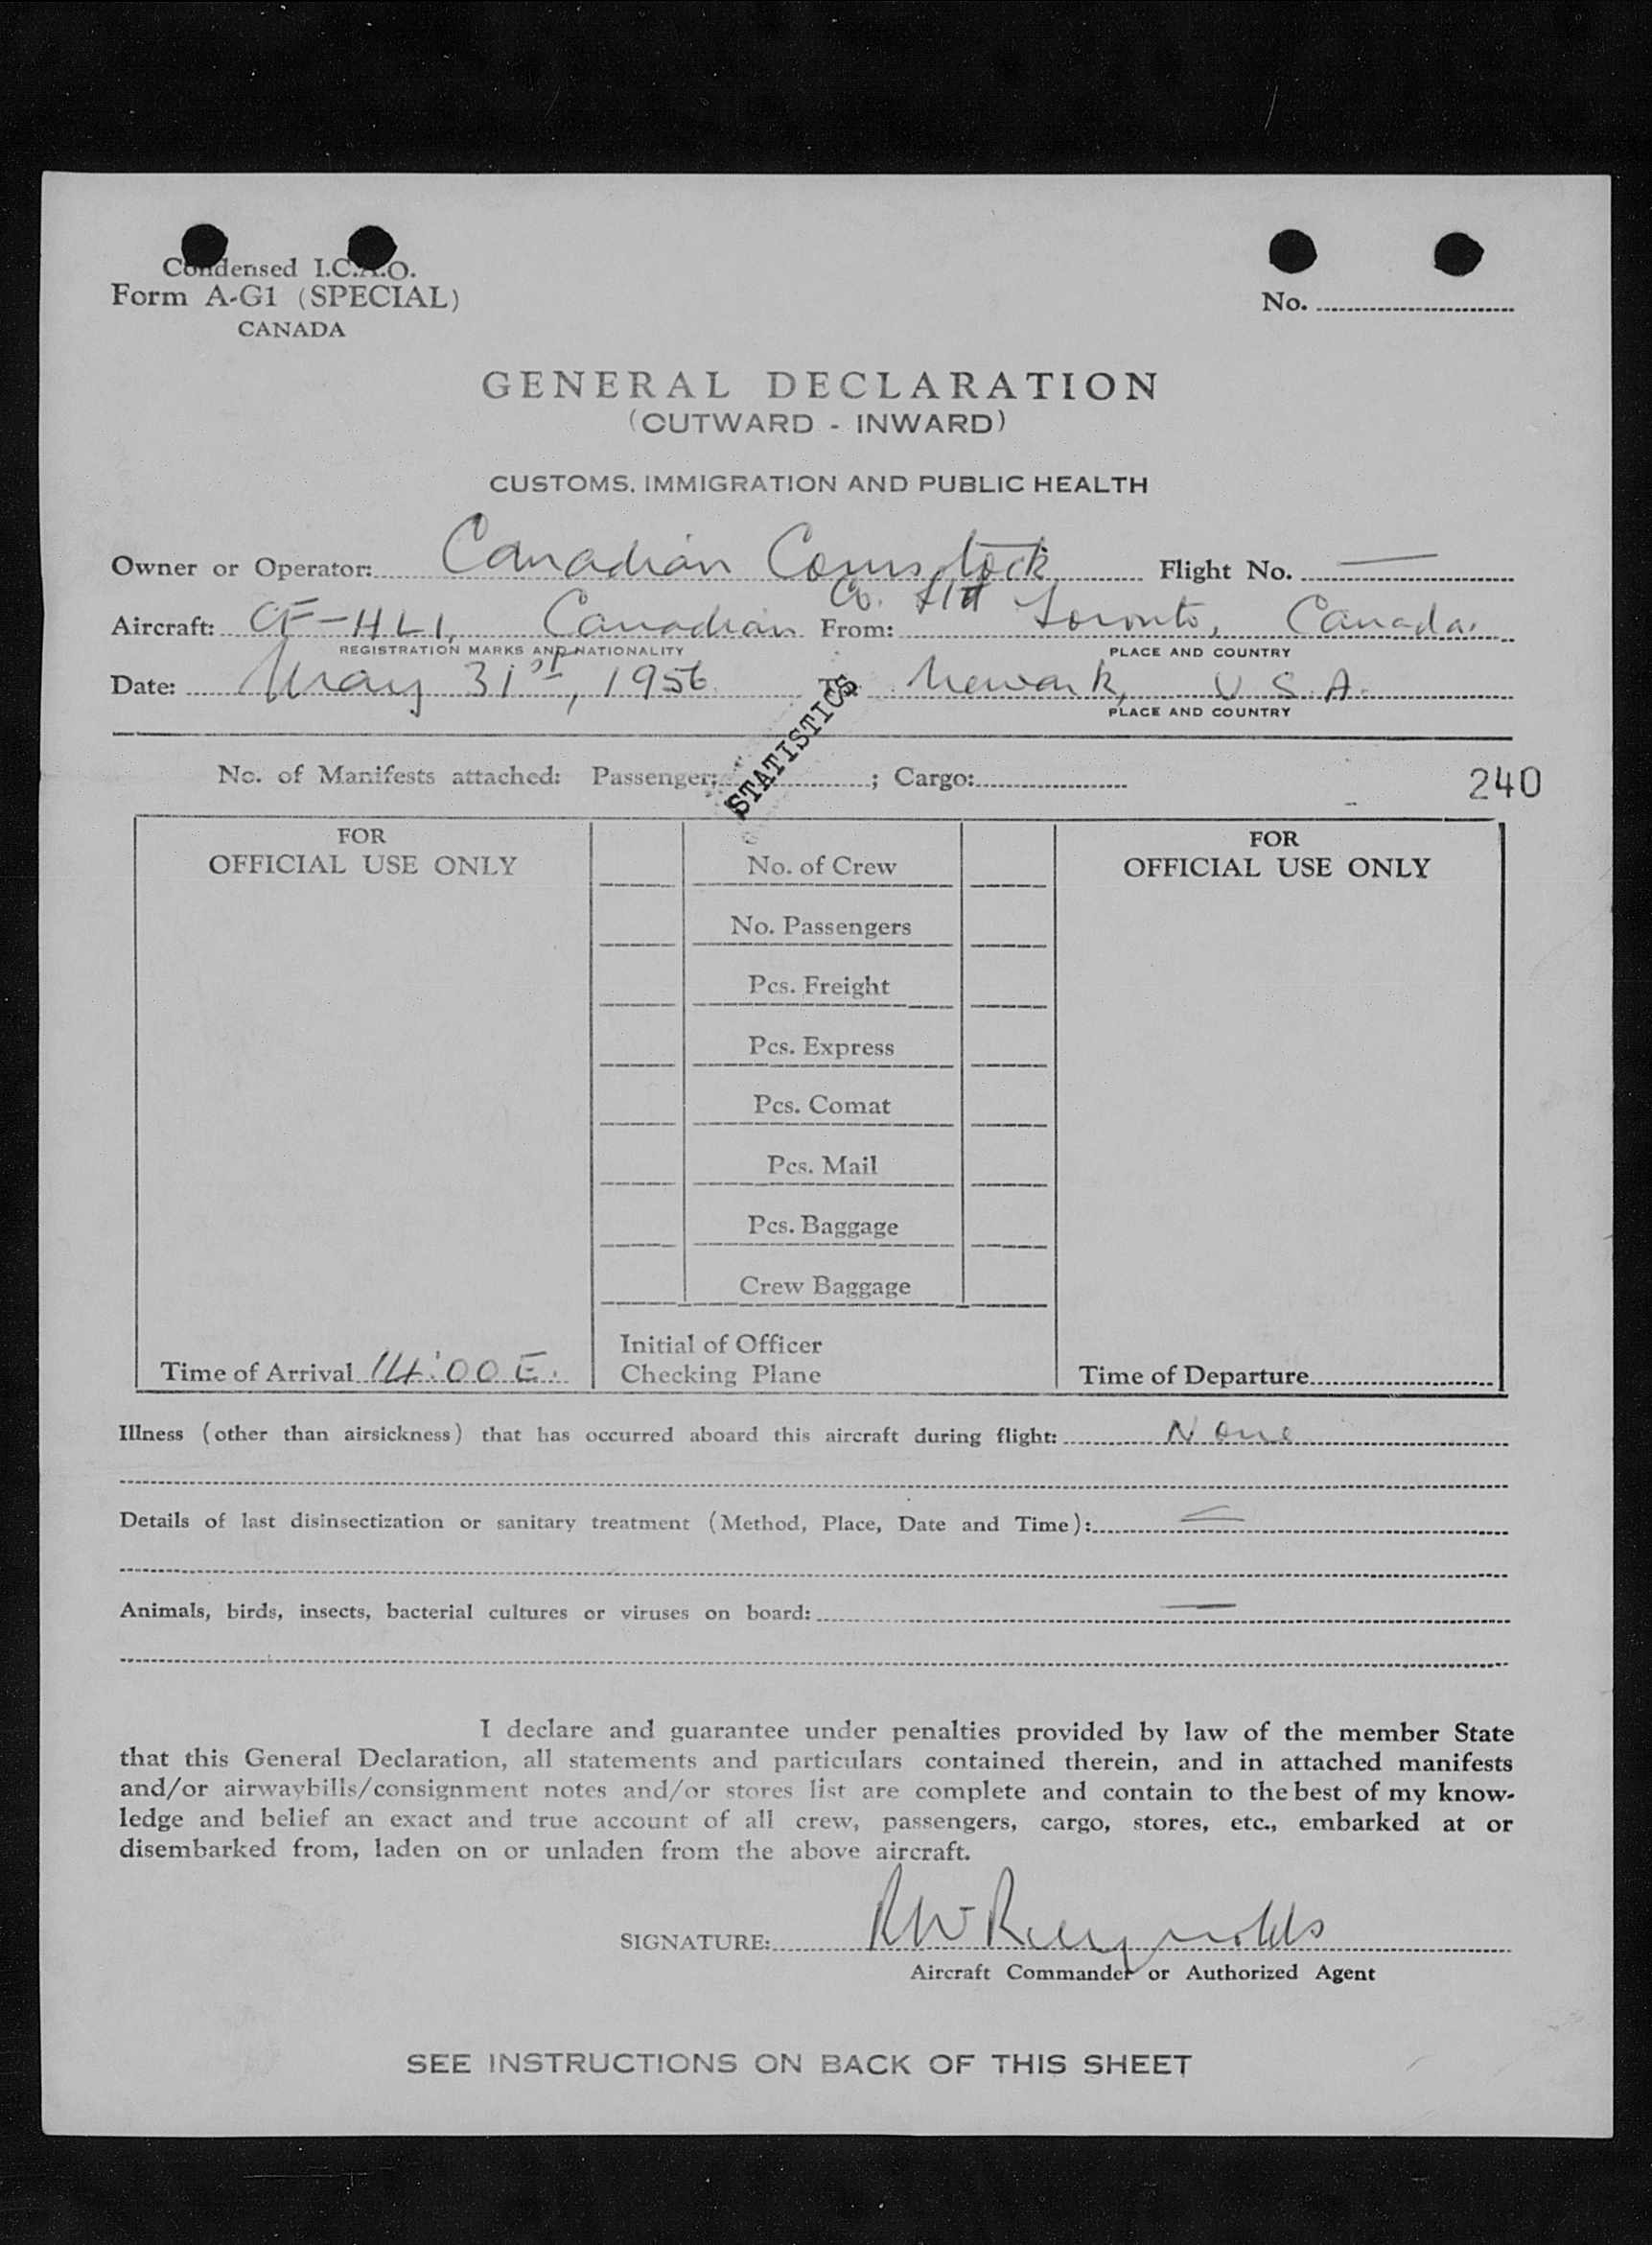 Condensed I.C.A.O.
Form A-G1 (SPECIAL)
CANADA
No.
GENERAL DECLARATION
(OUTWARD - INWARD)
CUSTOMS, IMMIGRATION AND PUBLIC HEALTH
Owner or Operator: Canadian Comstock Flight No. —
Co. Ltd
Aircraft: CF-HLI, Canadian From: Toronto, Canada.
REGISTRATION MARKS AND NATIONALITY PLACE AND COUNTRY
Date: May 31st, 1956 To Newark, U.S.A.
PLACE AND COUNTRY
STATISTICS
No. of Manifests attached: Passenger: ; Cargo: 240
FOR
OFFICIAL USE ONLY
No. of Crew
No. Passengers
Pcs. Freight
Pcs. Express
Pcs. Comat
Pcs. Mail
Pcs. Baggage
Crew Baggage
FOR
OFFICIAL USE ONLY
Time of Arrival 14:00 E.
Initial of Officer
Checking Plane
Time of Departure
Illness (other than airsickness) that has occurred aboard this aircraft during flight: None
Details of last disinsectization or sanitary treatment (Method, Place, Date and Time): —
Animals, birds, insects, bacterial cultures or viruses on board: —
I declare and guarantee under penalties provided by law of the member State
that this General Declaration, all statements and particulars contained therein, and in attached manifests
and/or airwaybills/consignment notes and/or stores list are complete and contain to the best of my know-
ledge and belief an exact and true account of all crew, passengers, cargo, stores, etc., embarked at or
disembarked from, laden on or unladen from the above aircraft.
SIGNATURE: RW Reynolds
Aircraft Commander or Authorized Agent
SEE INSTRUCTIONS ON BACK OF THIS SHEET